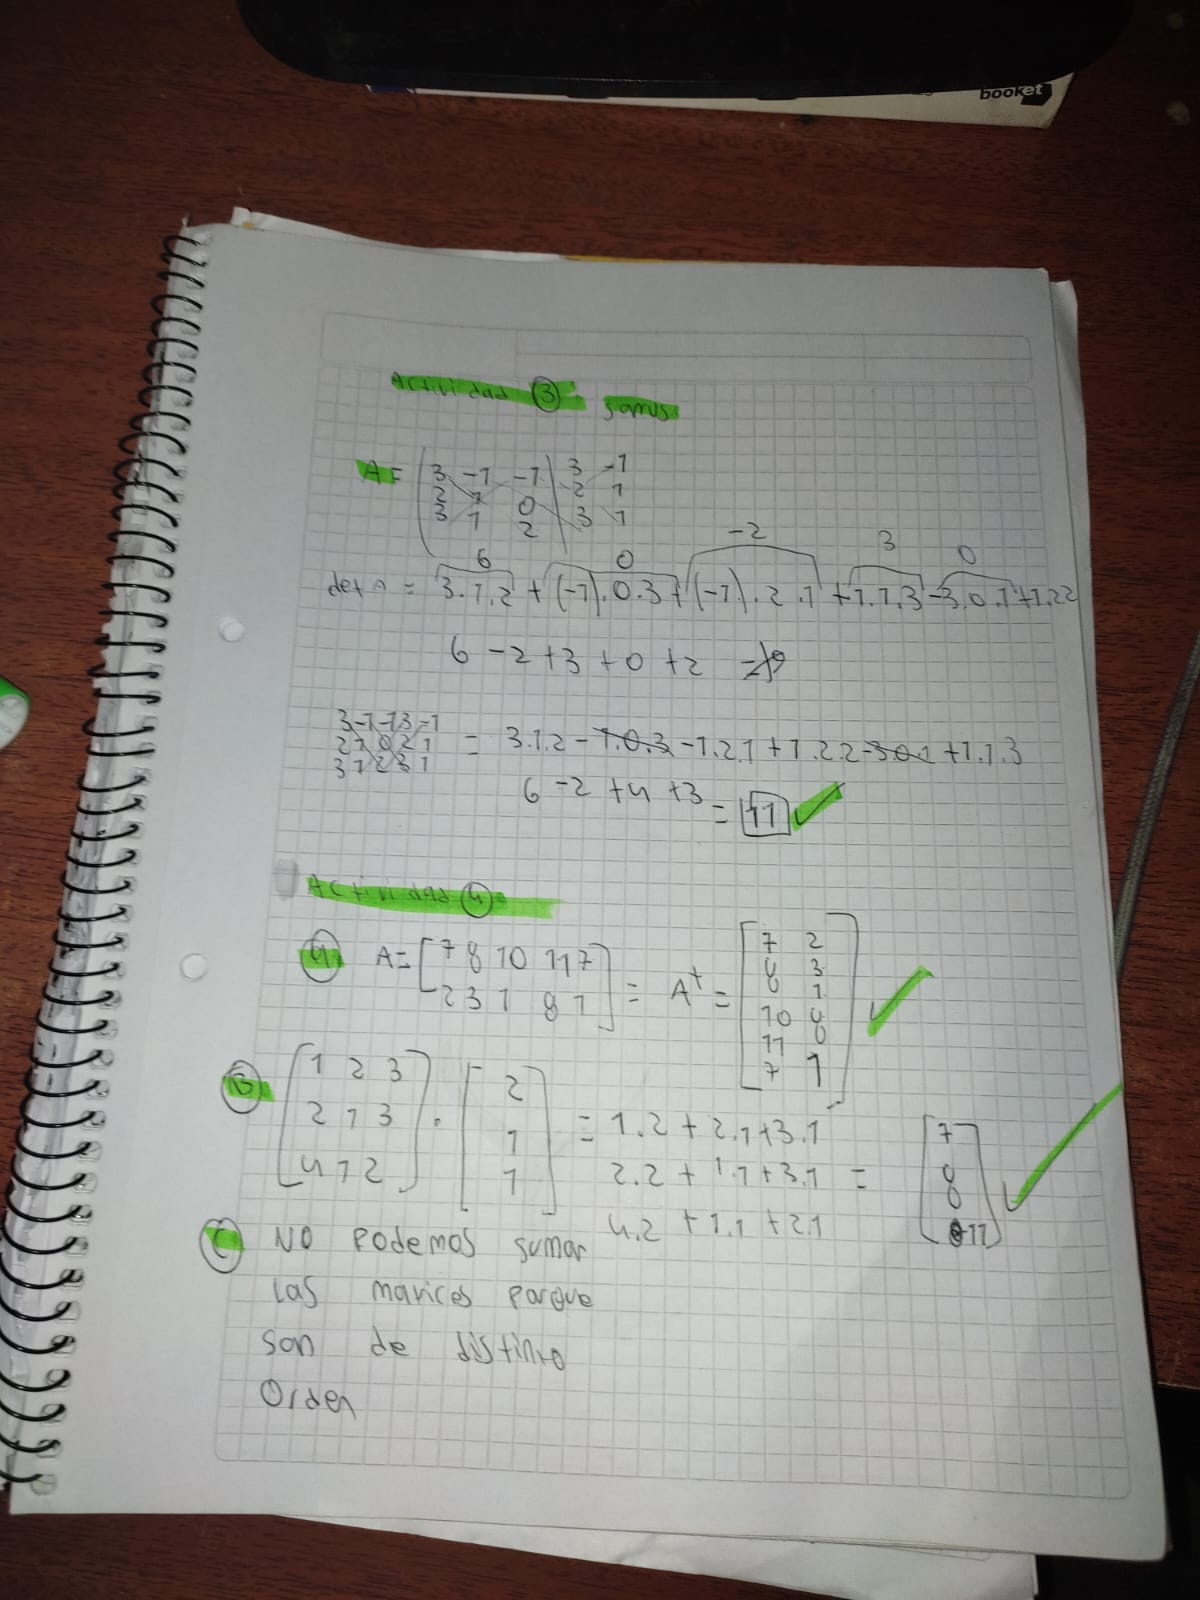 booket
Actividad 3. Sarrus
A = ( 3 -1 -1 | 3 -1
2 1 0 | 2 1
3 1 2 | 3 1
6 0 -2 3 0
det A = 3.1.2 + (-1).0.3 + (-1).2.1 + 1.1.3 - 3.0.1 + 1.2.2
6 - 2 + 3 + 0 + 2
3 -1 -1 3 -1
2 1 0 2 1 = 3.1.2 - 1.0.3 - 1.2.1 + 1.2.2 - 3.0.1 + 1.1.3
3 1 2 3 1
6 - 2 + 4 + 3 = 11 ✓
Actividad 4=
A = [ 7 8 10 11 7
2 3 1 8 1 ] = A^t = [ 7 2
8 3
1
10
11
7 1 ] ✓
B [ 1 2 3
2 1 3
4 1 2 ] . [ 2
1
1 ] = 1.2 + 2.1 + 3.1
2.2 + 1.1 + 3.1 =
4.2 + 1.1 + 2.1
[ 7
8
11 ] ✓
C No podemos sumar
Las marices porque
son de distinto
Orden